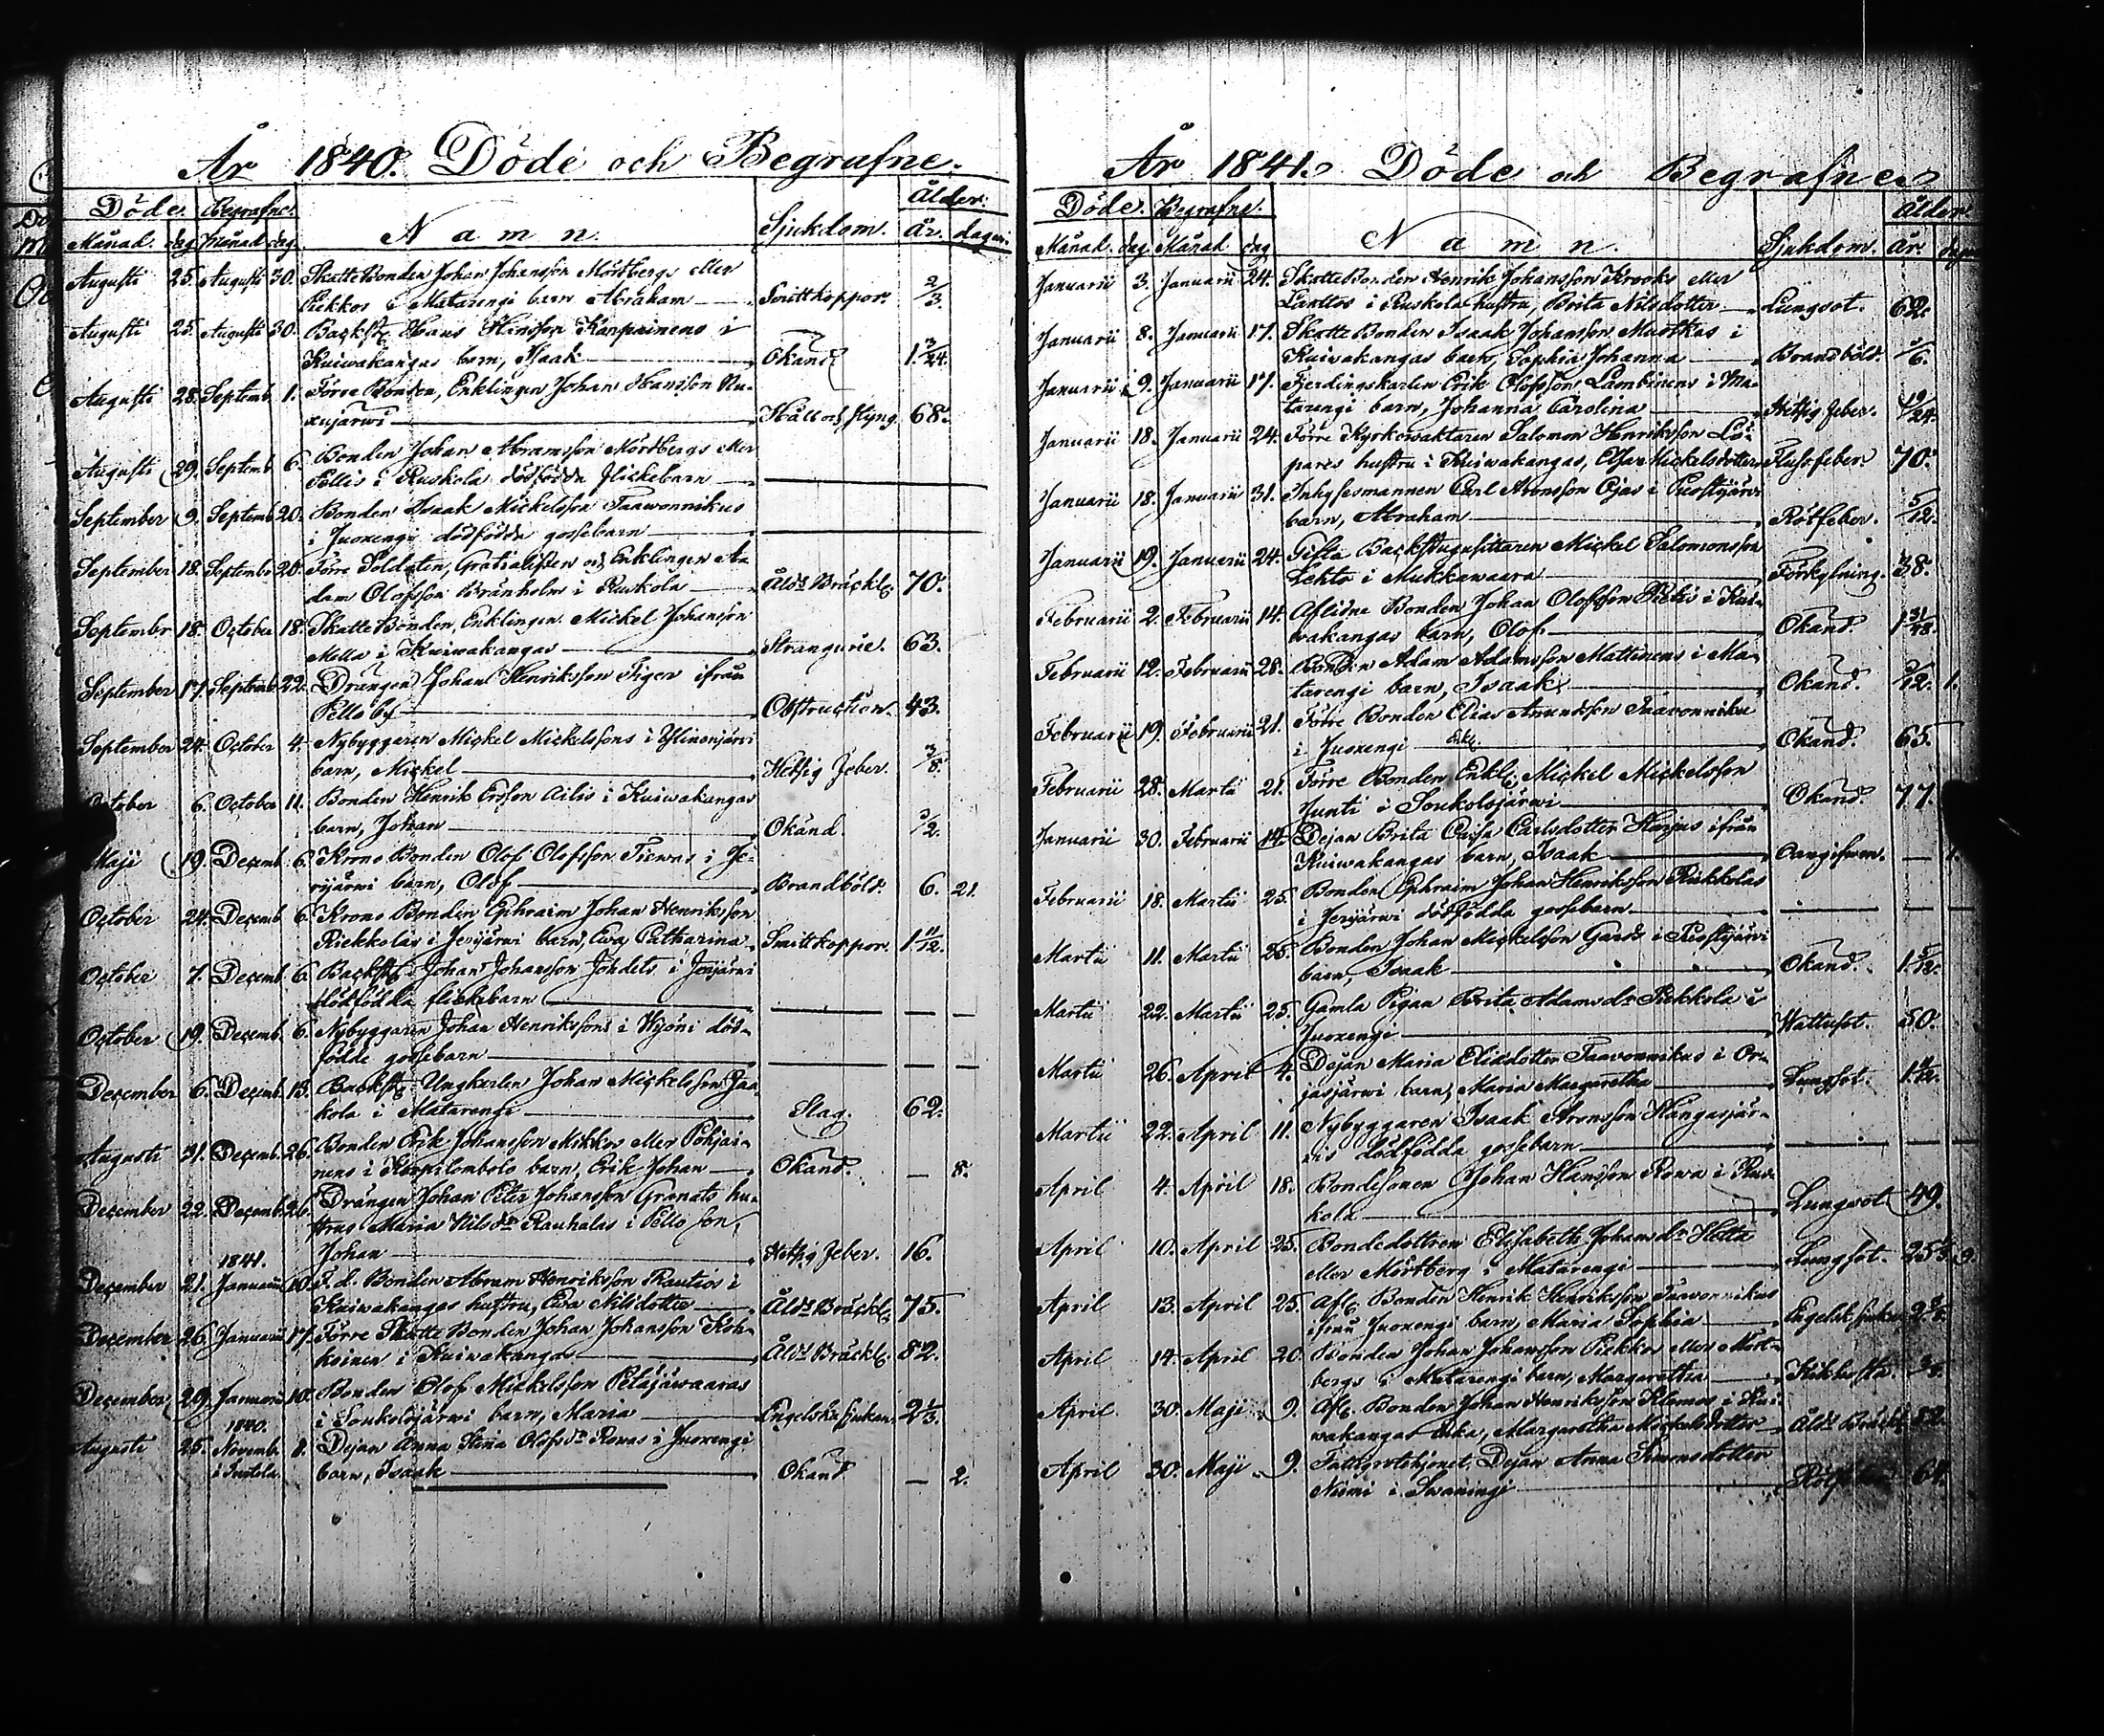 År 1840. Döde och Begrafne.
Döde. Begrafne. Namn. Sjukdom. Ålder.
Månad. dag Månad dag. År. dagar.
Augusti 25. Augusti 30. SkatteBonden Johan Johansson Mörtbergs eller
Piekkos i Matarengi barn Abraham Smittkoppor. 2/3.
Augusti 25. Augusti 30. Backst. Hans Hansson Kanpainens i
Kuiwakangas barn, Isaak Okänd 1 3/24.
Augusti 28. Septemb. 1. Förre Bonden, Enklingen Johan Hansson Ru-
xujärwi Håll och Styng. 68.
Augusti 29. Septemb. 6. Bonden Johan Abramsson Mörtbergs eller
Pellis i Ruskola dödfödda flickebarn
September 9. Septemb. 20. Bonden Isaak Mickelsson Taawonnikus
i Juoxengi dödfödda gossebarn
September 18. Septemb. 20. Förre Soldaten, Gratialisten och Enklingen A-
dam Olofsson Brånholm i Ruskola Åld. Bräckl. 70.
Septembr 18. October 18. SkatteBonden, Enklingen Mickel Johansson
Mella i Kuiwakangas Strangurie. 63.
September 17. Septemb. 22. Drängen Johan Henriksson Tiger ifrån
Pello by Obstruction. 43.
September 24. October 4. Nybyggaren Mickel Mickelssons i Ylinenjärwi
barn, Mickel Hetsig Feber. 3/8.
October 6. October 11. Bonden Henrik Ersson Ailis i Kuiwakangas
barn, Johan Okänd.
Maji 19. Decemb. 6. Krono Bonden Olof Olofsson Tiewas i Je-
rijärwi barn, Olof Brandböld. 6. 21.
October 24. Decemb. 6. Krono Bonden Ephraim Johan Henriksson
Riekkolas i Jerijärwi barn, Ewa Catharina Smittkoppor. 1 11/12.
October 7. Decemb. 6. Backst. Johan Johansson Johdets i Jerijärwi
dödfödda flickebarn
October 19. Decemb. 6. Nybyggaren Johan Henrikssons i död-
födde gossebarn
December 6. Decemb. 13. Backst. Ungkarlen Johan Mickelsson Jaa-
kola i Matarengi Slag. 62.
Augusti 31. Decemb. 26. Bonden Erik Johansson Mikkos eller Pohjai-
nens i Korpilombolo barn, Erik Johan Okänd. — 8.
December 22. Decemb. 26. Drängen Johan Peter Johansson Granats hu-
strus Maria Nilsd:r Rauhalas i Pello son,
Johan Hetsig Feber. 16.
1841.
December 21. Januarii 10. F. d. Bonden Abram Henriksson Rautios i
Kuiwakangas hustru, Ewa Nilsdotter Åld. Bräckl. 75.
December 26. Januarii 17. Förre SkatteBonden Johan Johansson Koh-
koinen i Kuiwakangas Åld. Bräckl. 82.
December 29. Januarii 10. Bonden Olof Mickelsson Petäjäwaaras
i Soukolojärwi barn, Maria Engelska sjukan. 2 1/3.
1840.
Augusti 25. Novemb. 8. Dejan Anna Stina Olofsd:r Rowas i Juoxengi
barn, Isaak Okänd — 2.
År 1841. Döde och Begrafne.
Döde. Begrafne. Namn. Sjukdom. Ålder
Månad. dag Månad dag År.
Januarii 3. Januarii 24. SkatteBonden Henrik Johansson Krooks eller
i Ruskola hustru, Brita Nilsdotter Lungsot. 62.
Januarii 8. Januarii 17. SkatteBonden Isaak Johansson Muotkas i
Kuiwakangas barn, Sophia Johanna Brandböld.
Januarii 9. Januarii 17. Fjerdingskarlen Erik Olofssons Lambinens i Ma-
tarengi barn, Johanna Carolina Hetsig Feber. 19/24.
Januarii 18. Januarii 24. Förre Kyrkowaktaren Salomon Henriksson Lö-
pares hustru i Kuiwakangas, Elsa Mickelsdotter Fluss feber. 70.
Januarii 18. Januarii 31. Inhysesmannen Carl Aronsson Ojas i Puostijärwi
barn, Abraham Rötfeber. 5/12.
Januarii 19. Januarii 24. Gifta Backstugusittaren Mickel Salomonsson
Lehto i Mukkawaara Förkylning. 38.
Februarii 2. Februarii 14. Aflidne Bonden Johan Olofsson i Kui-
wakangas barn, Olof Okänd. 1 31/48.
Februarii 12. Februarii 28. Bonden Adam Adamsson Mattinens i Ma-
tarengi barn, Isaak Okänd. 1.
Februarii 19. Februarii 21. Förre Bonden Elias Amundsson Taavonniku
i Juoxengi Enkl. Okänd. 65.
Februarii 28. Martii 21. Förre Bonden Enkl. Mickel Mickelsson
Junti i Soukolojärwi Okänd. 77.
Januarii 30. Februarii 14. Dejan Brita Caisa Carlsdotter Harjus ifrån
Kuiwakangas barn, Isaak Oangifwen. — 1.
Februarii 18. Martii 25. Bonden Ephraim Johan Henriksson Riekkolas
i Jerijärwi dödfödda gossebarn
Martii 11. Martii 25. Bonden Johan Mickelsson Gards i Puostijärwi
barn, Isaak Okänd. 1 5/12.
Martii 22. Martii 25. Gamla Pigan Brita Adamsd:r Piekkola i
Juoxengi Wattusot. 50.
Martii 26. April 4. Dejan Maria Eliædotter Taavonnikus i Or-
jasjärwi barn, Maria Margaretha Lungsot.
Martii 22. April 11. Nybyggaren Isaak Aronsson Kangasjär-
vis dödfödda gossebarn
April 4. April 18. Bondesonen Johan Hansson Rowa i Rus-
kola Lungsot. 49.
April 10. April 25. Bondedottren Elisabeth Johansd:r Hietta
eller Mörtberg i Matarengi Lungsot.
April 13. April 25. Afl. Bonden Henrik Henriksson Taavonnikus
ifrån Juoxengi barn, Maria Sophia Engelsk sjukan
April 14. April 20. Bonden Johan Johansson Piekkos eller Mört-
bergs i Matarengi barn, Margaretha Kikhosta.
April. 30. Maji 9. Afl. Bonden Johan Henriksson Klemos i Kui-
wakangas Enka, Margaretha Mickelsdotter Åld. Bräckl. 82.
April 30. Maji 9. Fattighjonet Dejan Anna Simonsdotter
Niemi i Swaningi 64.